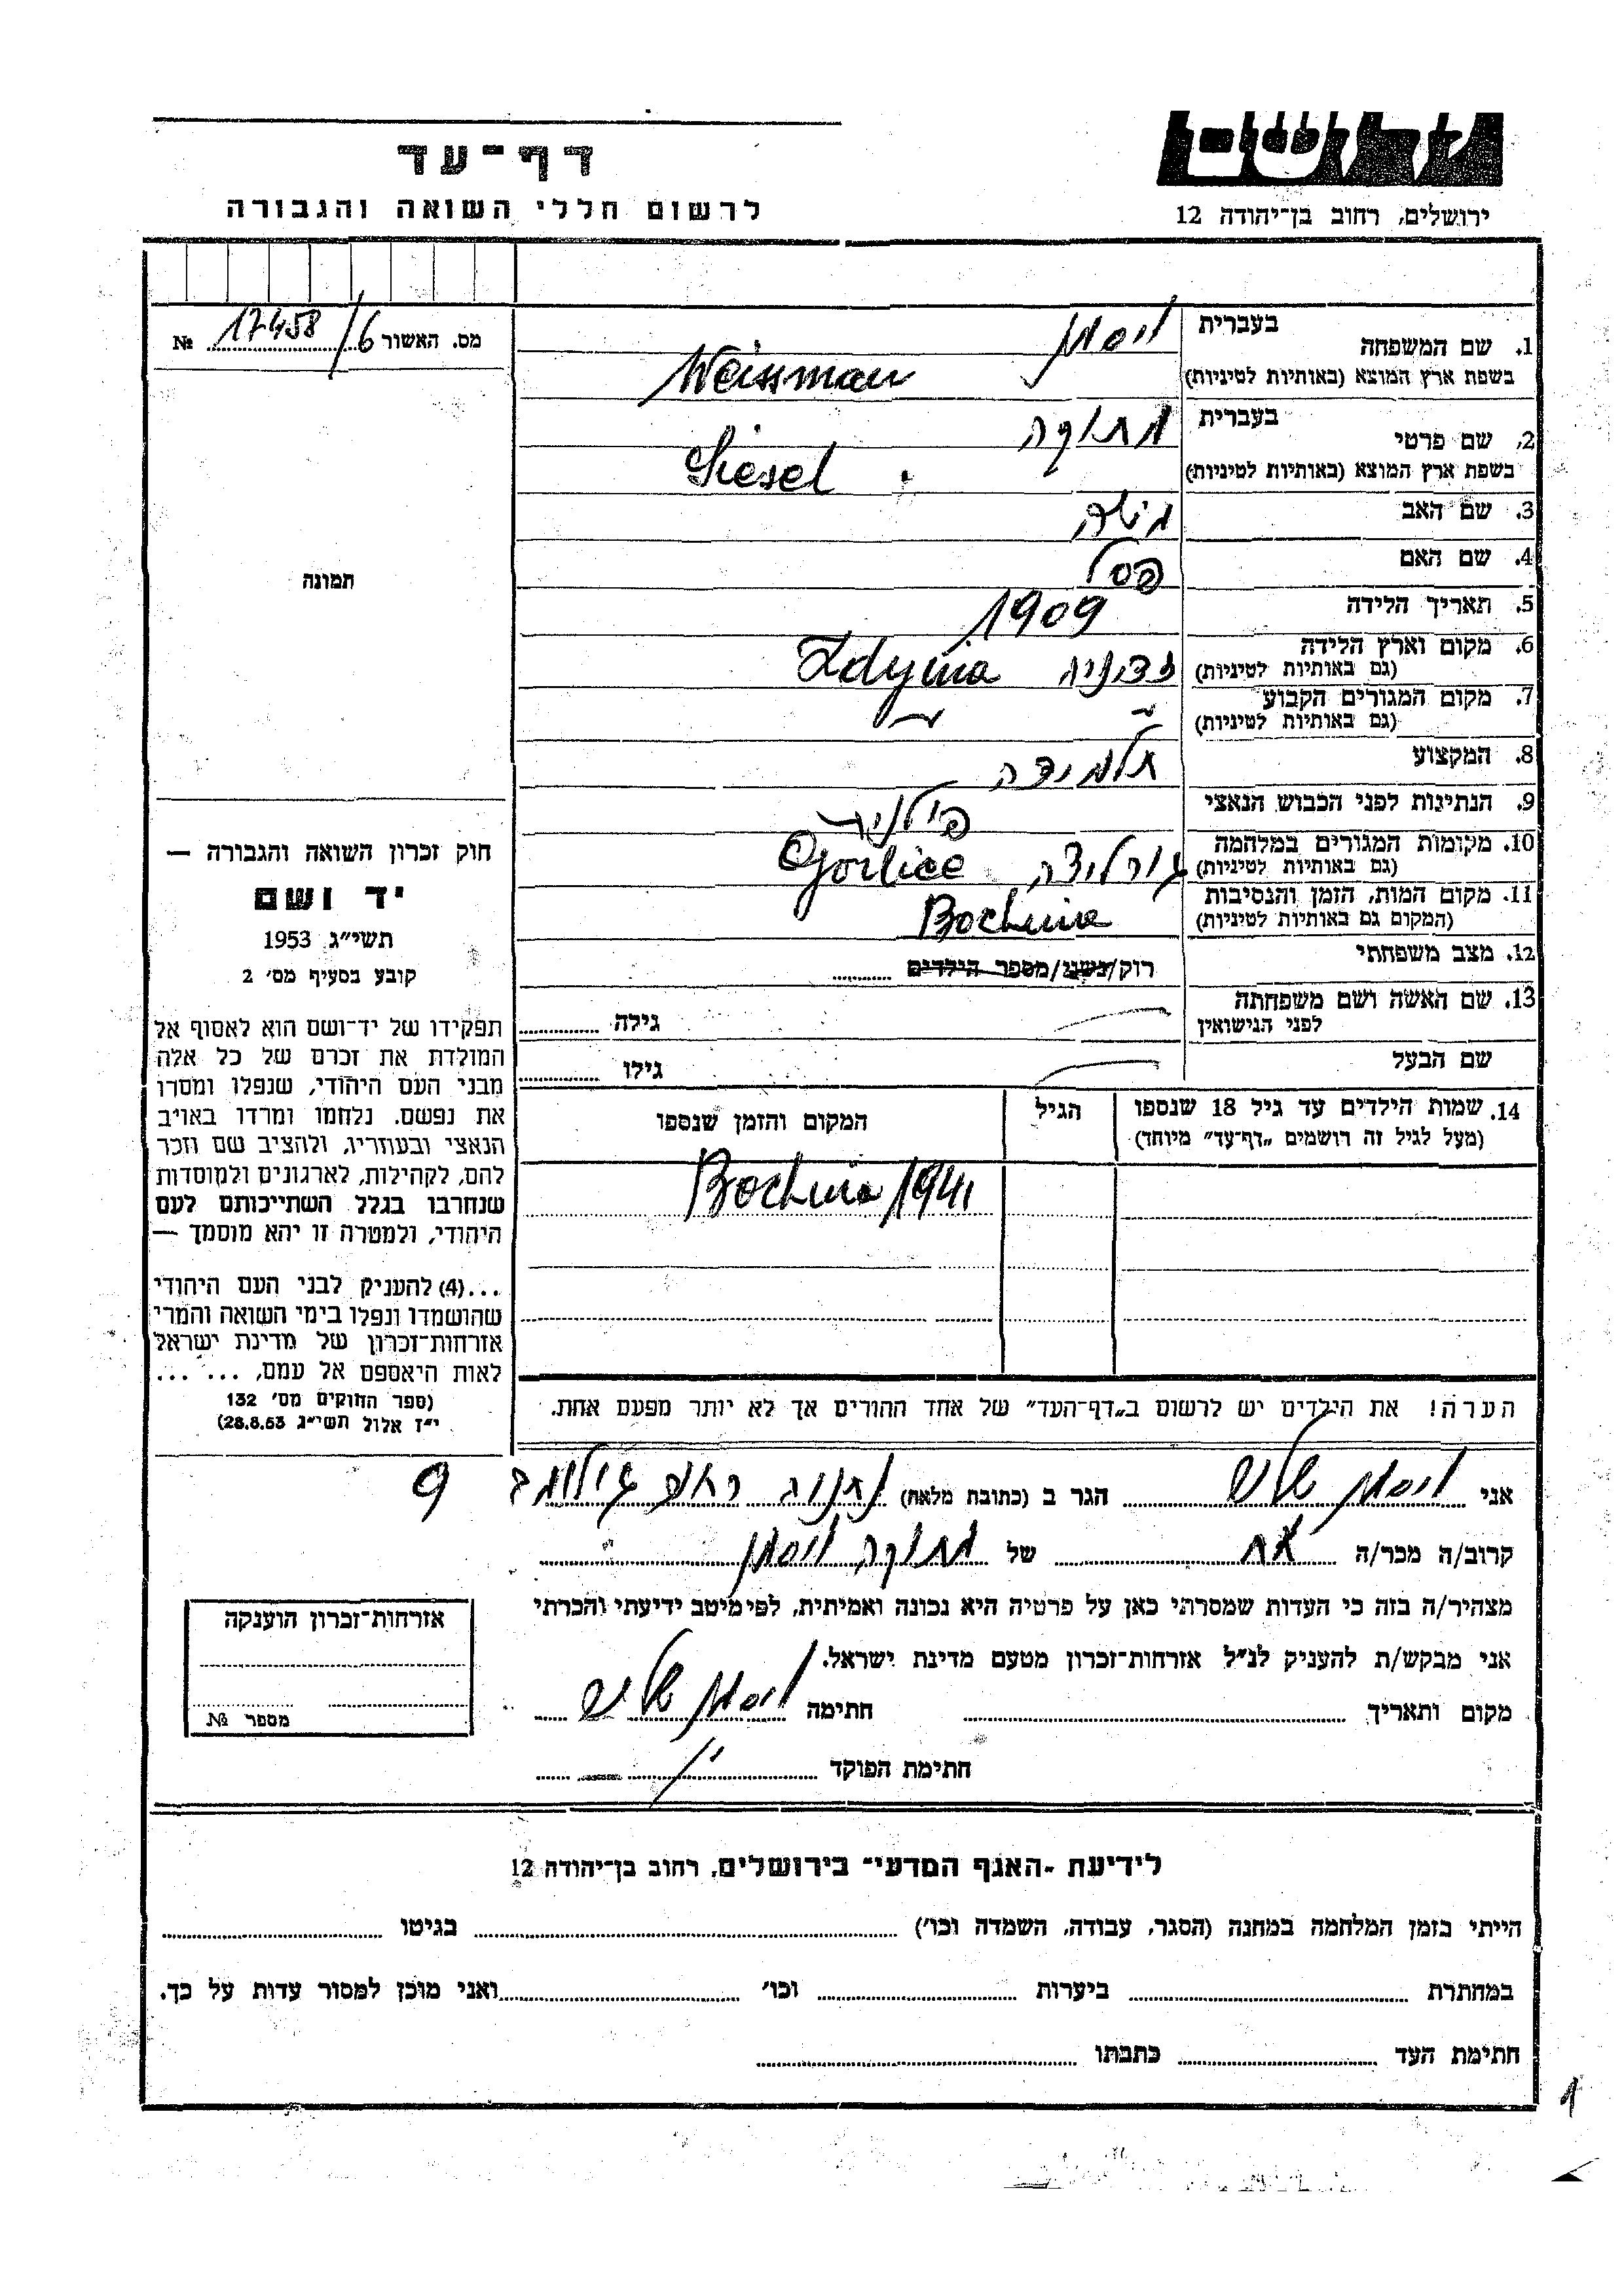 יד ושם
ירושלים, רחוב בן־יהודה 12
דף־עד
לרשום חללי השואה והגבורה
מס. האשור 17458/6 №
1. שם המשפחה בעברית ויסמן
בשפת ארץ המוצא (באותיות לטיניות) Weissman
2. שם פרטי בעברית מתוקה
בשפת ארץ המוצא (באותיות לטיניות) Siesel
3. שם האב
4. שם האם פסל
5. תאריך הלידה 1909
6. מקום וארץ הלידה
(גם באותיות לטיניות) Zdynia
7. מקום המגורים הקבוע
(גם באותיות לטיניות) ״ ״
8. המקצוע תלמידה
9. הנתינות לפני הכבוש הנאצי
10. מקומות המגורים במלחמה
(גם באותיות לטיניות) גורליצה Gorlice
11. מקום המות, הזמן והנסיבות
(המקום גם באותיות לטיניות) Bochnia
12. מצב משפחתי רוק/נשוי/מספר הילדים
13. שם האשה ושם משפחתה
לפני הנישואין גילה
שם הבעל גילו
14. שמות הילדים עד גיל 18 שנספו הגיל המקום והזמן שנספו
(מעל לגיל זה רושמים „דף־עד״ מיוחד)
Bochnia 1941
הערה! את הילדים יש לרשום ב„דף־העד״ של אחד ההורים אך לא יותר מפעם אחת.
תמונה
חוק זכרון השואה והגבורה —
יד ושם
תשי״ג 1953
קובע בסעיף מס׳ 2
תפקידו של יד־ושם הוא לאסוף אל
המולדת את זכרם של כל אלה
מבני העם היהודי, שנפלו ומסרו
את נפשם. נלחמו ומרדו באויב
הנאצי ובעוזריו, ולהציב שם וזכר
להם, לקהילות, לארגונים ולמוסדות
שנחרבו בגלל השתייכותם לעם
היהודי, ולמטרה זו יהא מוסמך —
...(4) להעניק לבני העם היהודי
שהושמדו ונפלו בימי השואה והמרי
אזרחות־זכרון של מדינת ישראל
לאות היאספם אל עמם, ... ...
(ספר החוקים מס׳ 132
י״ז אלול תשי״ג 28.8.53)
אני ויסמן הגר ב (כתובת מלאה) נתניה רחוב 9
קרוב/ה מכר/ה אח של מתוקה ויסמן
מצהיר/ה בזה כי העדות שמסרתי כאן על פרטיה היא נכונה ואמיתית, לפי מיטב ידיעתי והכרתי
אני מבקש/ת להעניק לנ״ל אזרחות־זכרון מטעם מדינת ישראל.
מקום ותאריך חתימה ויסמן
חתימת הפוקד
אזרחות־זכרון הוענקה
מספר №
לידיעת ־האגף המדעי־ בירושלים, רחוב בן־יהודה 12
הייתי בזמן המלחמה במחנה (הסגר, עבודה, השמדה וכו׳) בגיטו
במחתרת ביערות וכו׳ ואני מוכן למסור עדות על כך.
חתימת העד כתבתו
1